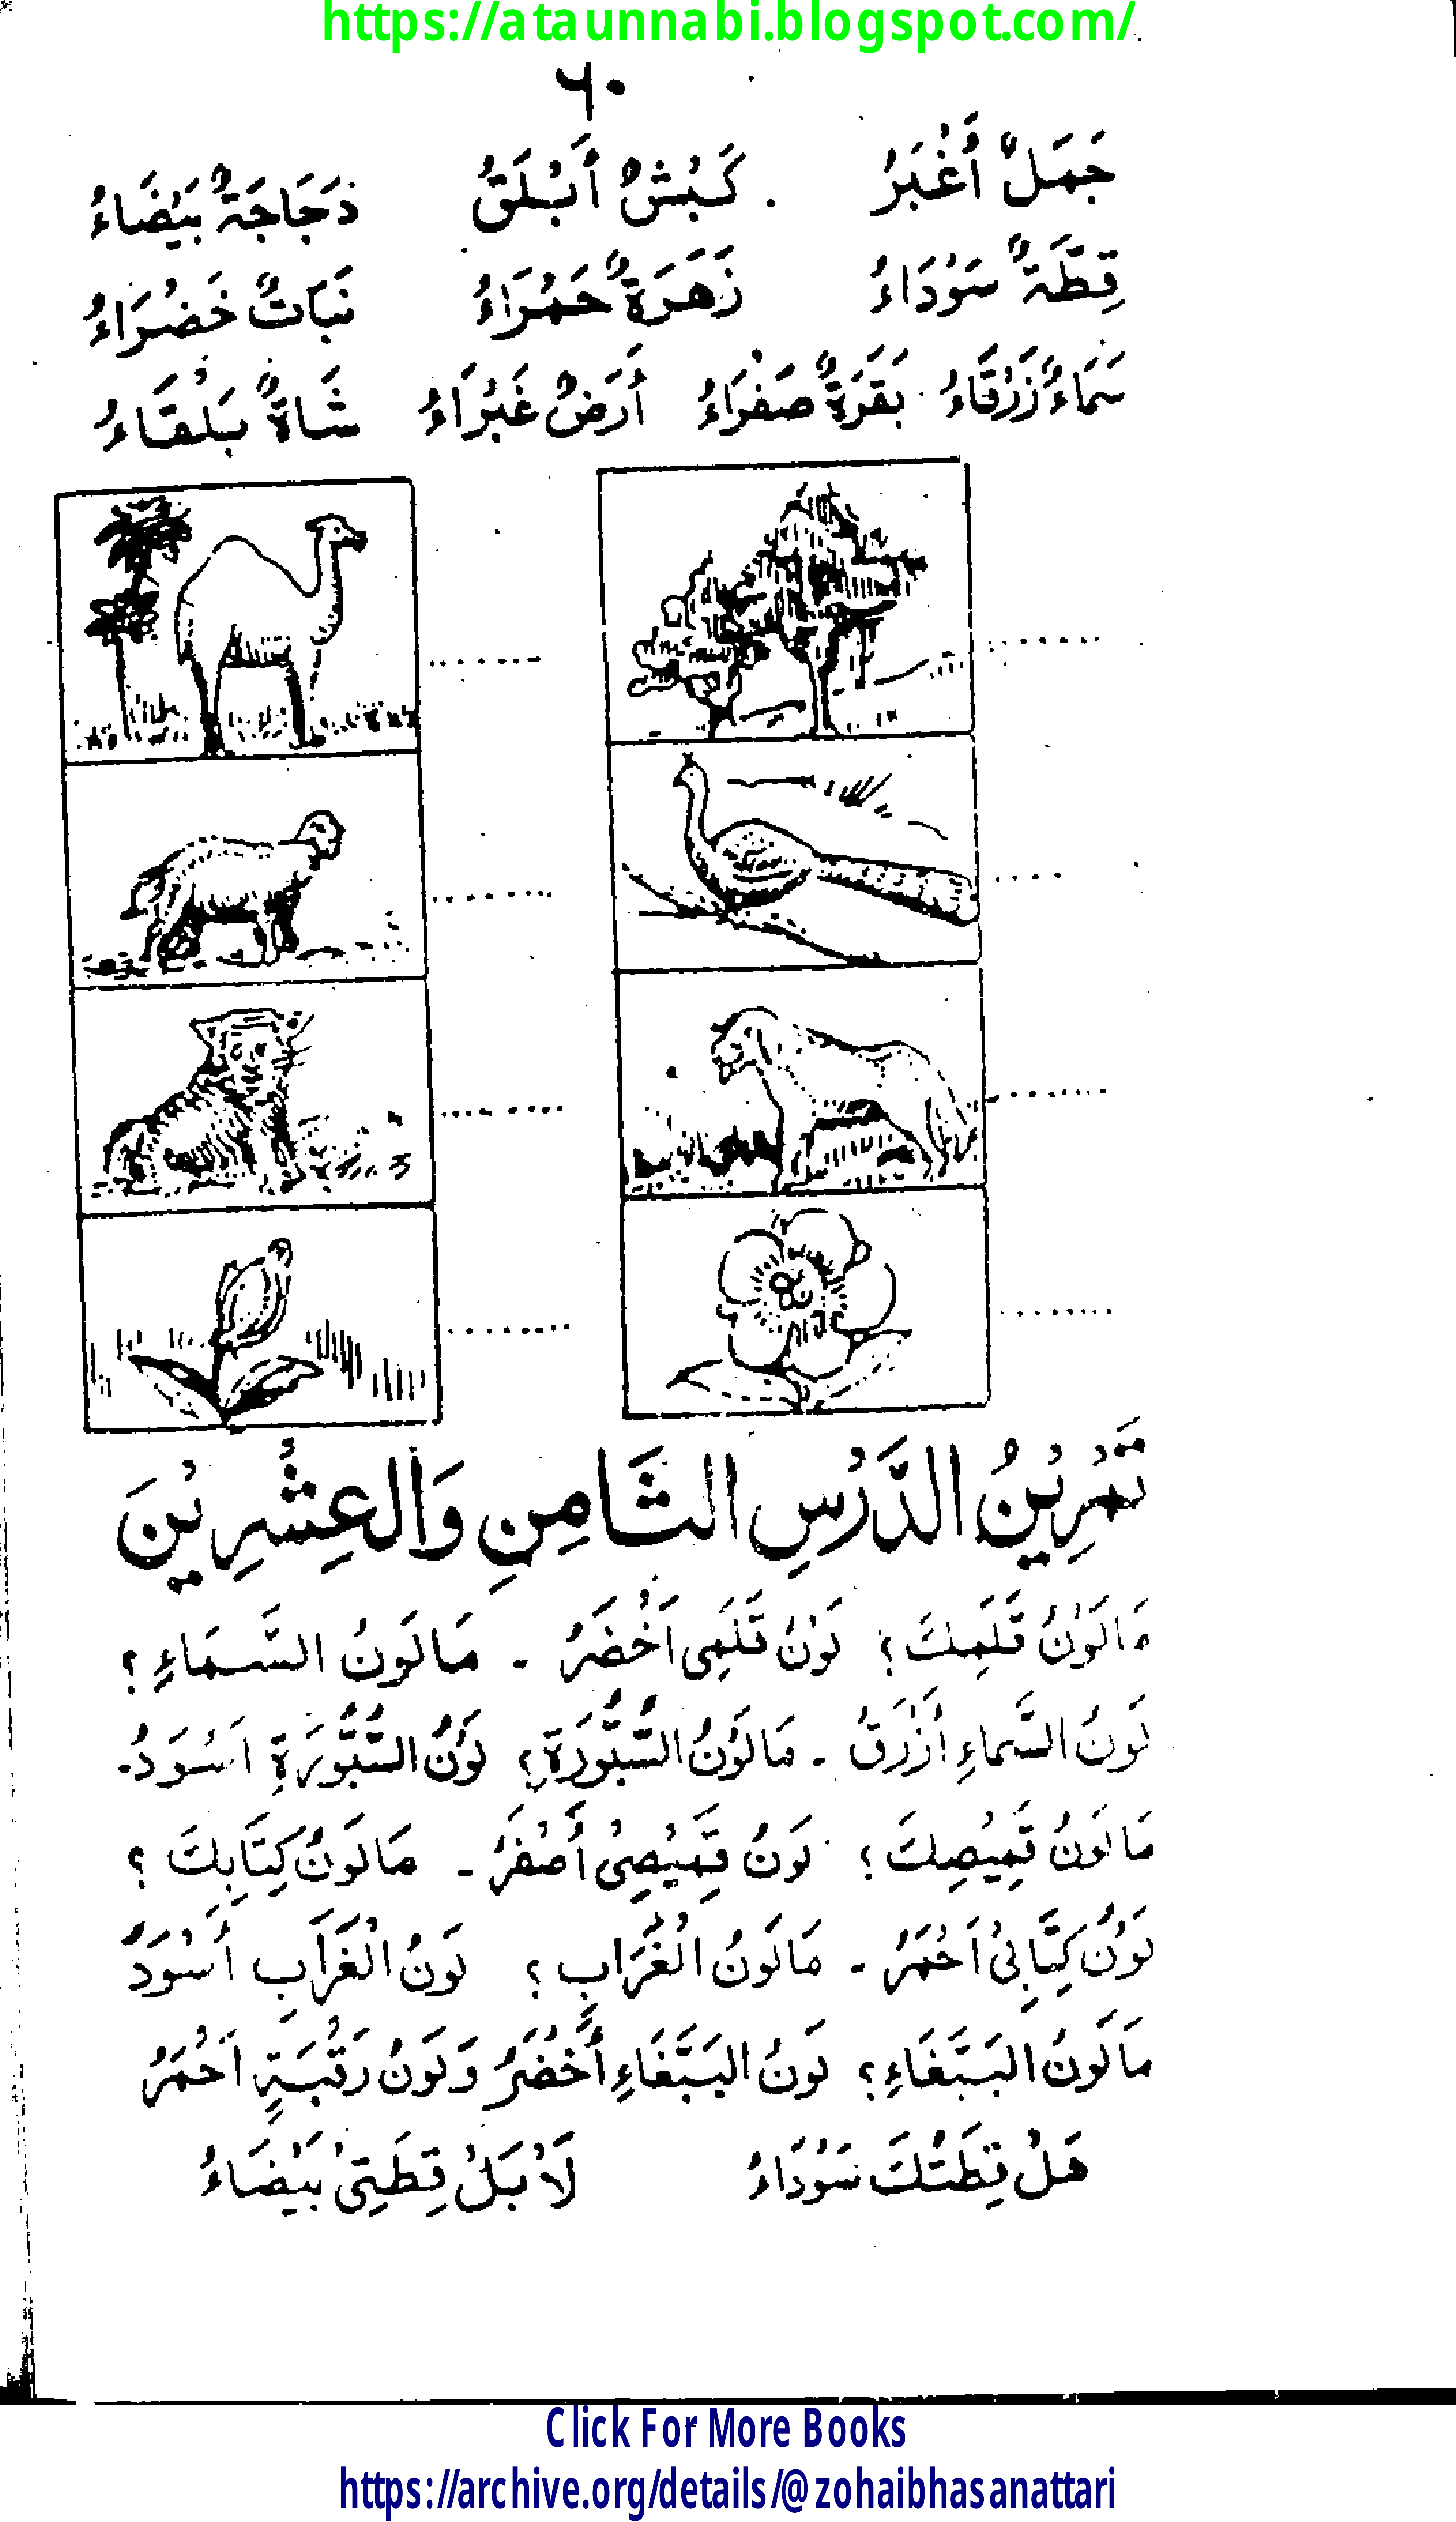 https://ataunnabi.blogspot.com/
٦٠
جَمَلٌ أَغْبَرُ كَبْشٌ أَبْلَقُ دَجَاجَةٌ بَيْضَاءُ
قِطَّةٌ سَوْدَاءُ زَهَرَةٌ حَمْرَاءُ نَبَاتٌ خَضْرَاءُ
سَمَاءٌ زَرْقَاءُ بَقَرَةٌ صَفْرَاءُ أَرَضٌ غَبْرَاءُ شَاةٌ بَلْقَاءُ
تَمْرِيْنُ الدَّرْسِ الثَّامِنِ وَالعِشْرِيْنَ
مَالَوْنُ قَلَمِكَ؟ لَوْنُ قَلَمِى اَخْضَرُ ۔ مَالَوْنُ السَّمَاءِ؟
لَوْنُ السَّمَاءِ أَزْرَقُ ۔ مَالَوْنُ السَّبُّوْرَةِ؟ لَوْنُ السَّبُّوْرَةِ اَسْوَدُ۔
مَا لَوْنُ قَمِيْصِكَ؟ لَوْنُ قَمِيْصِىْ أَصْفَرُ ۔ مَالَوْنُ كِتَابِكَ؟
لَوْنُ كِتَابِىْ اَحْمَرُ ۔ مَالَوْنُ الْغُرَابِ؟ لَوْنُ الْغَرَابِ أَسْوَدُ
مَا لَوْنُ البَبَّغَاءِ؟ لَوْنُ البَبَّغَاءِ أَخْضَرُ وَلَوْنُ رَقْبَةٍ اَحْمَرُ
هَلْ قِطَتُكَ سَوْدَاءُ لَا بَلْ قِطَتِىْ بَيْضَاءُ
Click For More Books
https://archive.org/details/@zohaibhasanattari